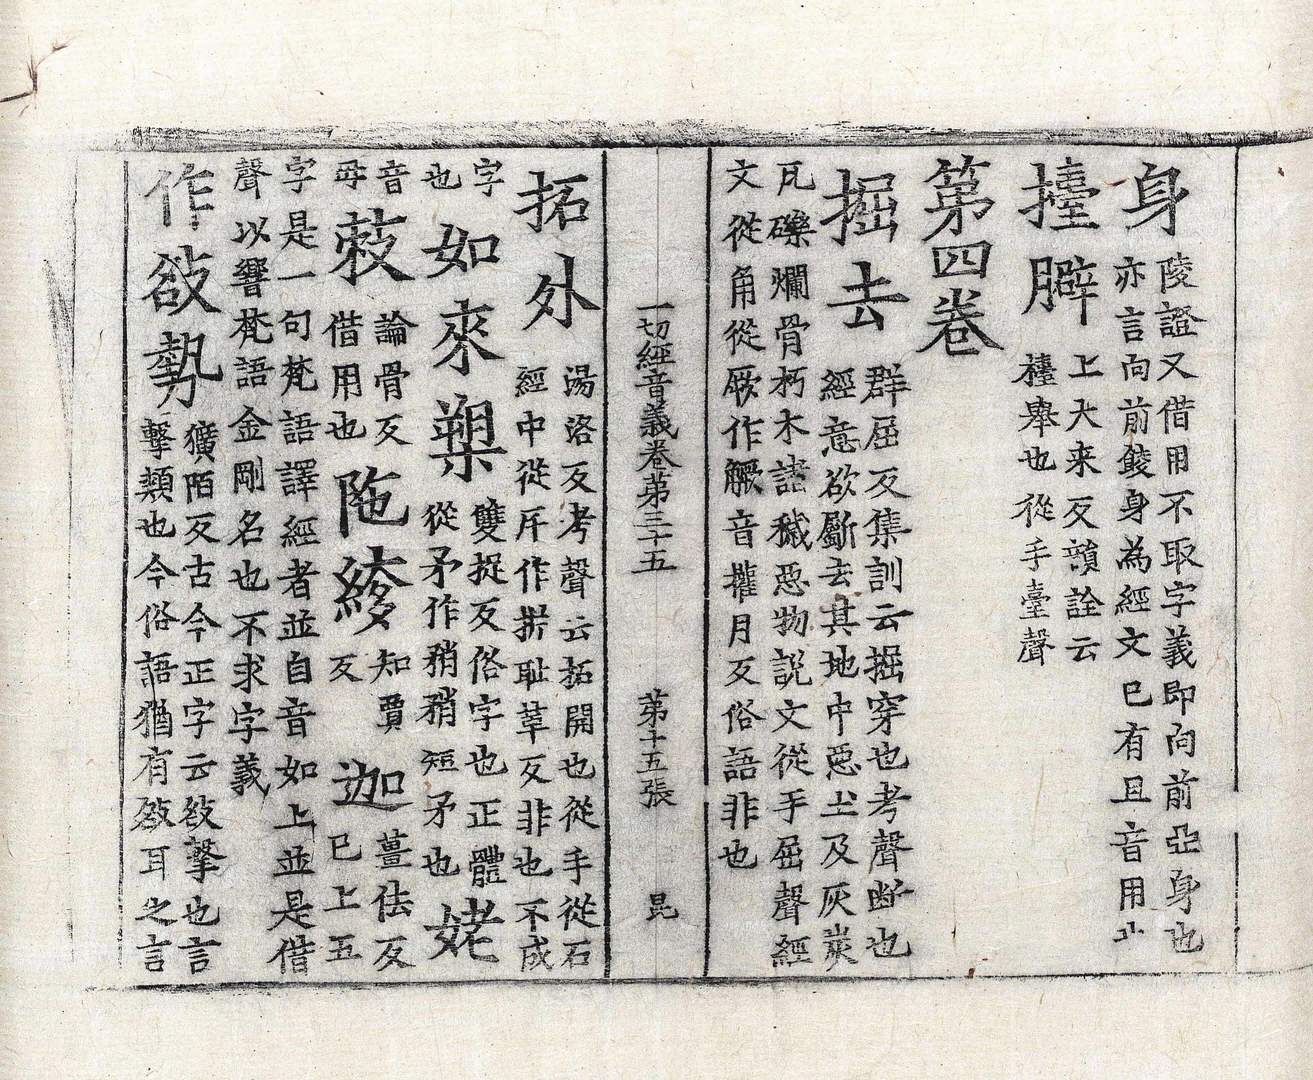 身
陵證又借用不取字義即向前亞身也
亦言向前餕身為經文已有且音用
擡躃
上大来反韻詮云
擡舉也從手臺聲
第四卷
掘去
群屈反集訓云掘穿也考聲断也
經意欲斸去其地中惡土及灰炭
瓦礫爛骨朽木諸穢惡物説文從手屈聲經
文從角從厥作觼音攉月反俗語非也
一切經音義卷第三十五 第十五張 昆
拓外
湯洛反考聲云拓開也從手從石
經中從㡿作㧻耻革反非也不成
字
也
如來槊
雙捉反俗字也正體
從矛作矟矟短矛也
姥
音
毋
䓤
論骨反
借用也
陁
縿
知賈
反
迦
薑佉反
已上五
字是一句梵語譯經者並自音如上並是借
聲以響梵語金剛名也不求字義
作敆勢
獷陌反古今正字云敆擊也言
擊類也今俗語猶有敆耳之言